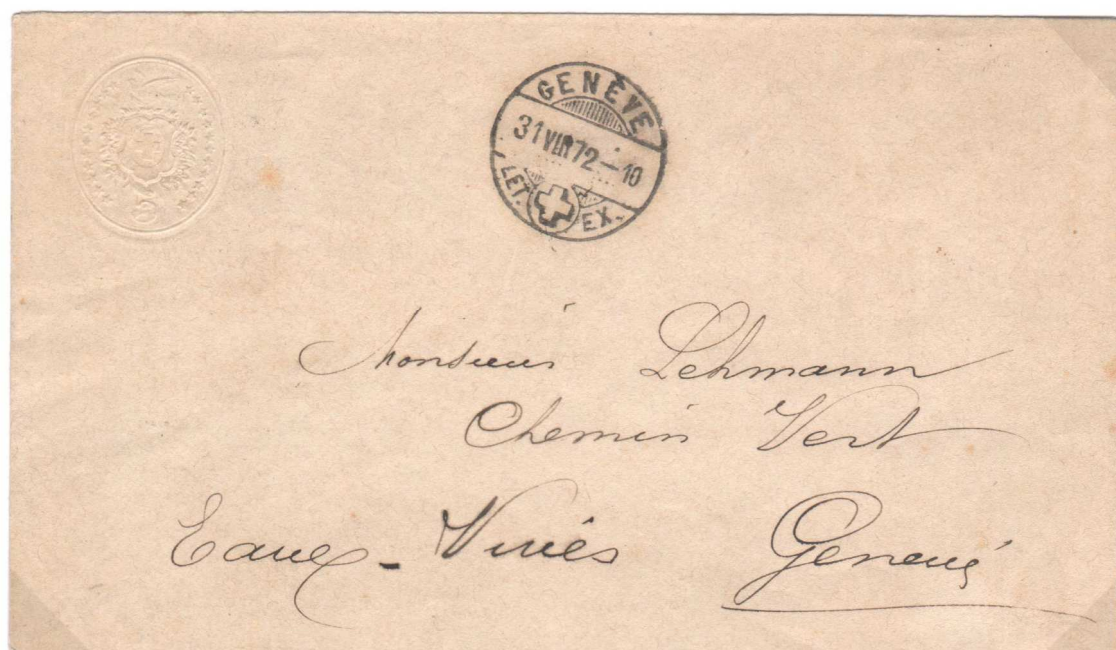 GENÈVE
31 VIII 72 — 10
LET. EX.
Monsieur Lehmann
Chemin Vert
Eaux-Vives Genève